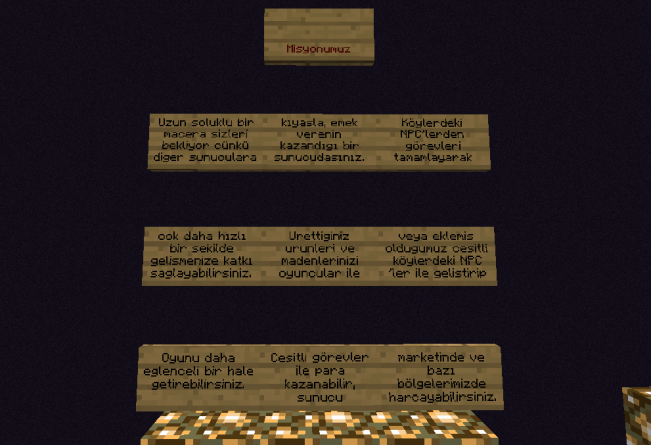 Misyonumuz
Uzun soluklu bir
macera sizleri
bekliyor cünkü
diger sunuculara
kıyasla, emek
verenin
kazandıgı bir
sunucudasınız.
Köylerdeki
NPC'lerden
görevleri
tamamlayarak
cok daha hızlı
bir sekilde
gelismenize katkı
saglayabilirsiniz.
Urettiginiz
urunleri ve
madenlerinizi
oyuncular ile
veya eklemis
oldugumuz cesitli
köylerdeki NPC
'ler ile gelistirip
Oyunu daha
eglenceli bir hale
getirebilirsiniz.
Cesitli görevler
ile para
kazanabilir,
sunucu
marketinde ve
bazı
bölgelerimizde
harcayabilirsiniz.